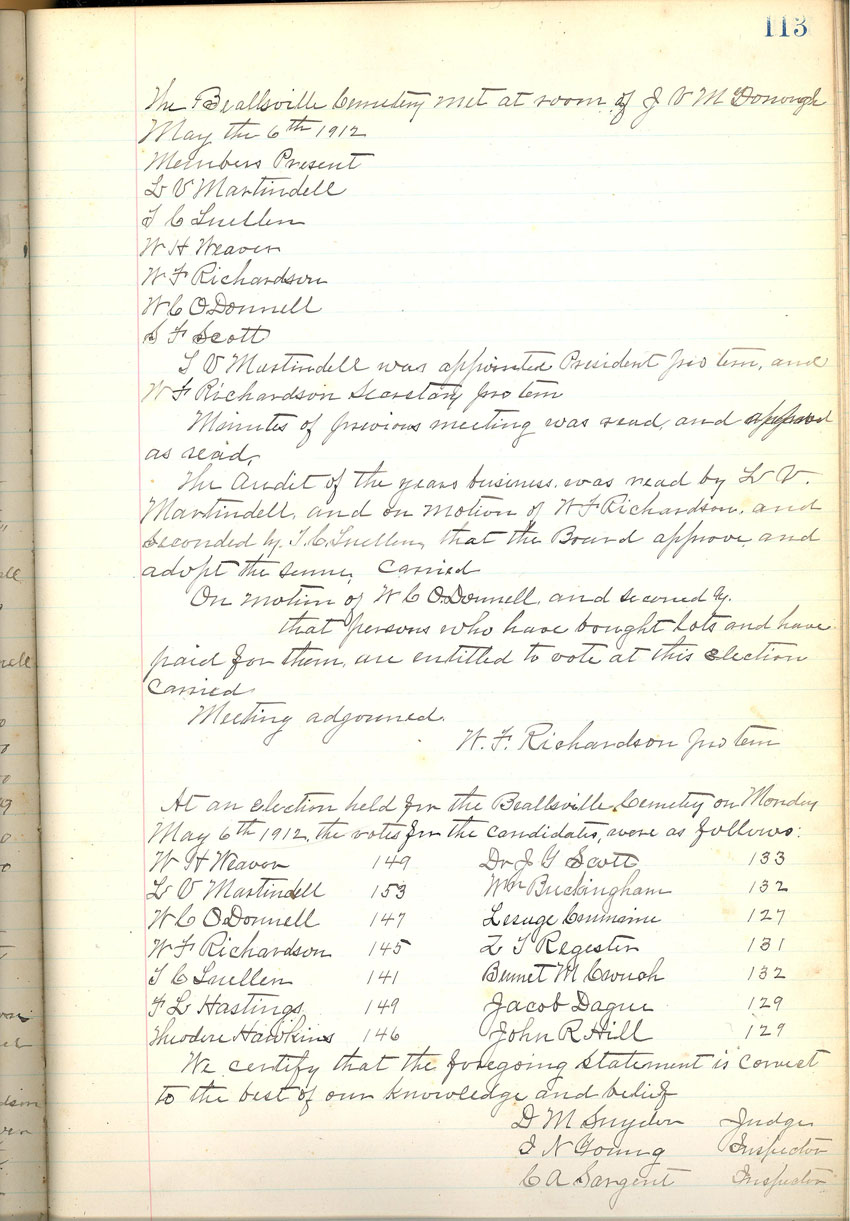 113
The Beallsville Cemetery met at room of J V McDonough
May the 6th 1912
Members Present
L V Martindell
T C Luellen
W H Weaver
W F Richardson
W C ODonnell
S F Scott
L V Martindell was appointed President pro tem, and
W F Richardson Secretary pro tem
Minutes of previous meeting was read, and approved
as read,
The Audit of the years business, was read by L V.
Martindell, and on motion of W F Richardson, and
seconded by T. C. Luellen, that the Board approve and
adopt the same, Carried
On motion of W C ODonnell, and seconed by.
that persons who have bought lots and have
paid for them, are entitled to vote at this election
Carried
Meeting adgourned.
W. F. Richardson pro tem
At an election held for the Beallsville Cemetery on Monday
May 6th 1912, the votes for the candidates, were as follows:
W H Weaver 149 Dr J G Scott 133
L V Martindell 153 Wm Buckingham 132
W C ODonnell 147 127
W F Richardson 145 Z T Register 131
T C Luellen 141 Bennet M Crouch 132
F L Hastings 149 Jacob Dague 129
Theodore Hawkins 146 John R Hill 129
We certify that the foregoing statement is correct
to the best of our knowledge and belief
D M Snyder Judge
I N Young Inspector
C A Sargent Inspector